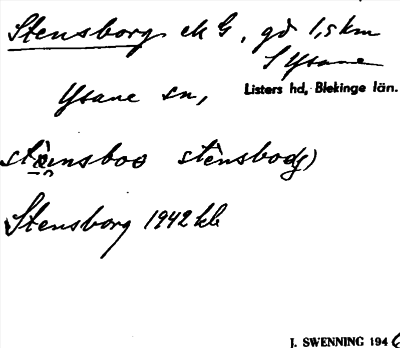 Stensborg ek G, gd 1,5 km
S Ysane
Ysane sn,
Listers hd, Blekinge län.
stensbor stensbor(j)
Stensborg 1942 kb
J. SWENNING 194